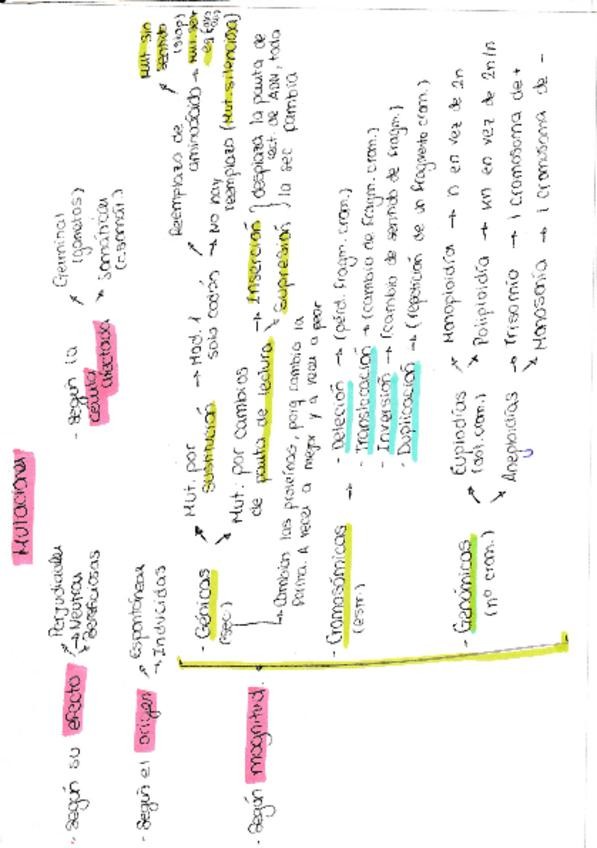 Mutaciones
- Según su efecto
Perjudiciales
→ Neutras
Beneficiosas
- Según la
célula
afectada
Germinal
(gametos)
Somáticas
- Según el origen
Espontáneas
→ Inducidas
- Según magnitud
- Génicas
(sec.)
Mut. por
sustitución
→ Mod. 1
solo codón
Reemplazo de
aminoácido
Mut sin
sentido
(stop)
→ No hay
reemplazo (Mut. silenciosa)
Mut. por cambios
de pauta de lectura
→ Inserción
Supresión
desplaza la pauta de
lect. de ADN, toda
la sec cambia
→ Cambian las proteínas, porq cambia la
forma. A veces a mejor y a veces a peor
- Cromosómicas
(estr.)
→
- Deleción → (pérd. fragm. crom.)
- Translocación → (cambio de fragm. crom.)
- Inversión → (cambio de sentido de fragm.)
- Duplicación → (repetición de un fragmento crom.)
- Genómicas
(nº crom.)
Euploidías
Monoploidía → n en vez de 2n
Poliploidía → xn en vez de 2n/n
Aneploidías
→ Trisomía → 1 cromosoma de +
Monosomía → 1 cromosoma de -